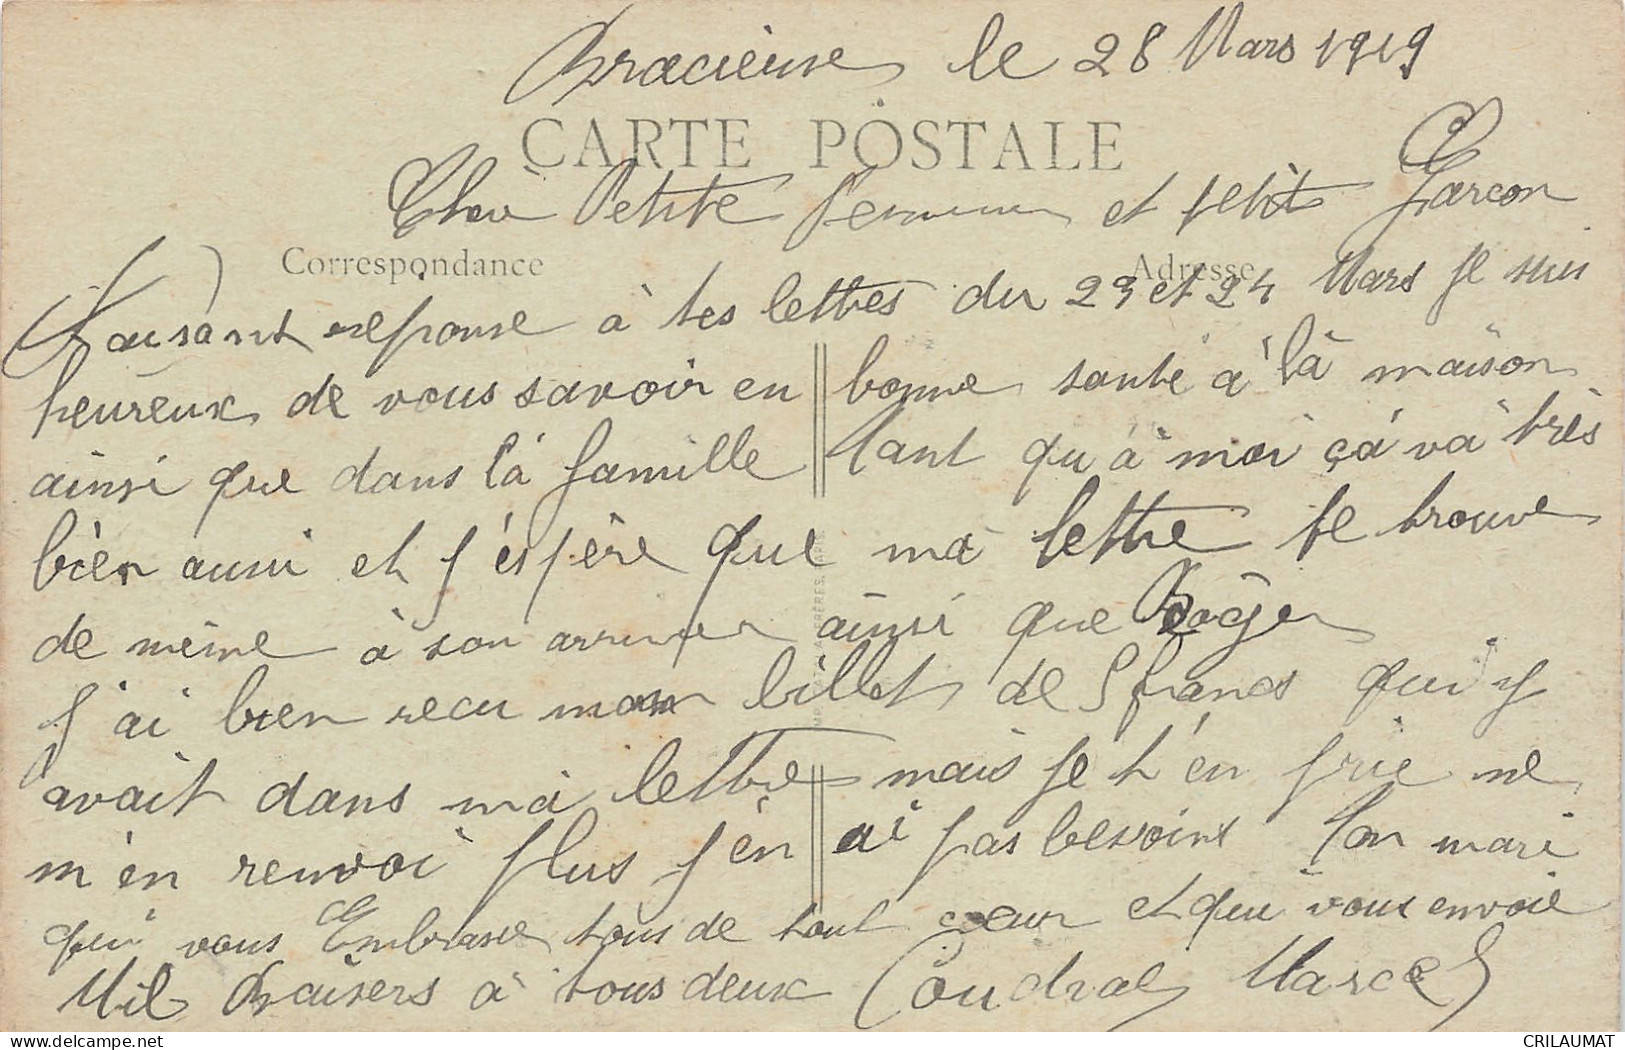 Bracieux le 28 Mars 1919
CARTE POSTALE
Chere Petite Femme et petit Garcon
Correspondance
Adresse
Faisant reponse à tes lettres du 23 et 24 Mars je suis
heureux de vous savoir en bonne santé à là maison
ainsi que dans là famille tant qu'à moi çà và très
bien aussi et j'éspère que mà lettre te trouve
de même à son arriver ainsi que Roger
j'ai bien recu mon billet de 5 francs qui y
avait dans mà lettre mais je t'en prie ne
m'en renvoi plus j'èn ai pas besoins Ton mari
qui vous Embrasse tous de tout cœur et qui vous envoie
Mil Baisers à tous deux Coudral Marcel
www.delcampe.net
CRILAUMAT